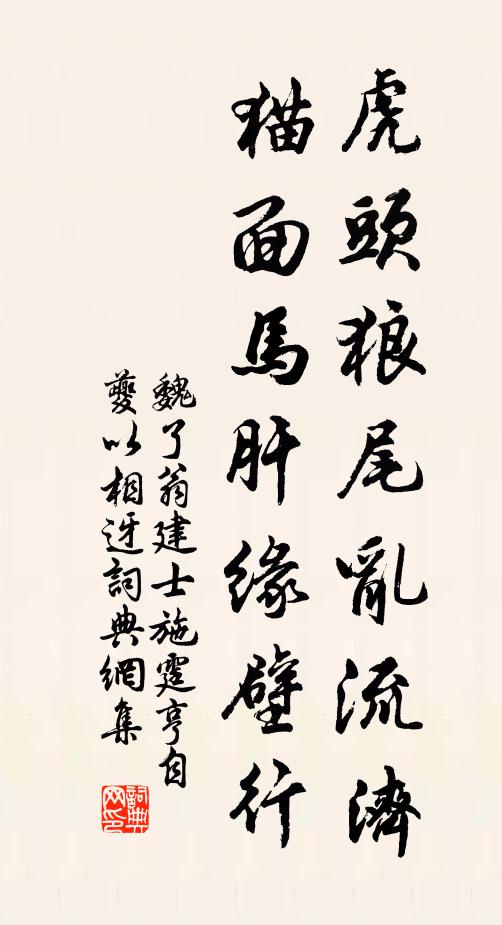 虎頭狼尾亂流濟
猫面馬肝缘壁行
魏了翁建士施霆亨自
夔以相迓詞典網集
詞典网印